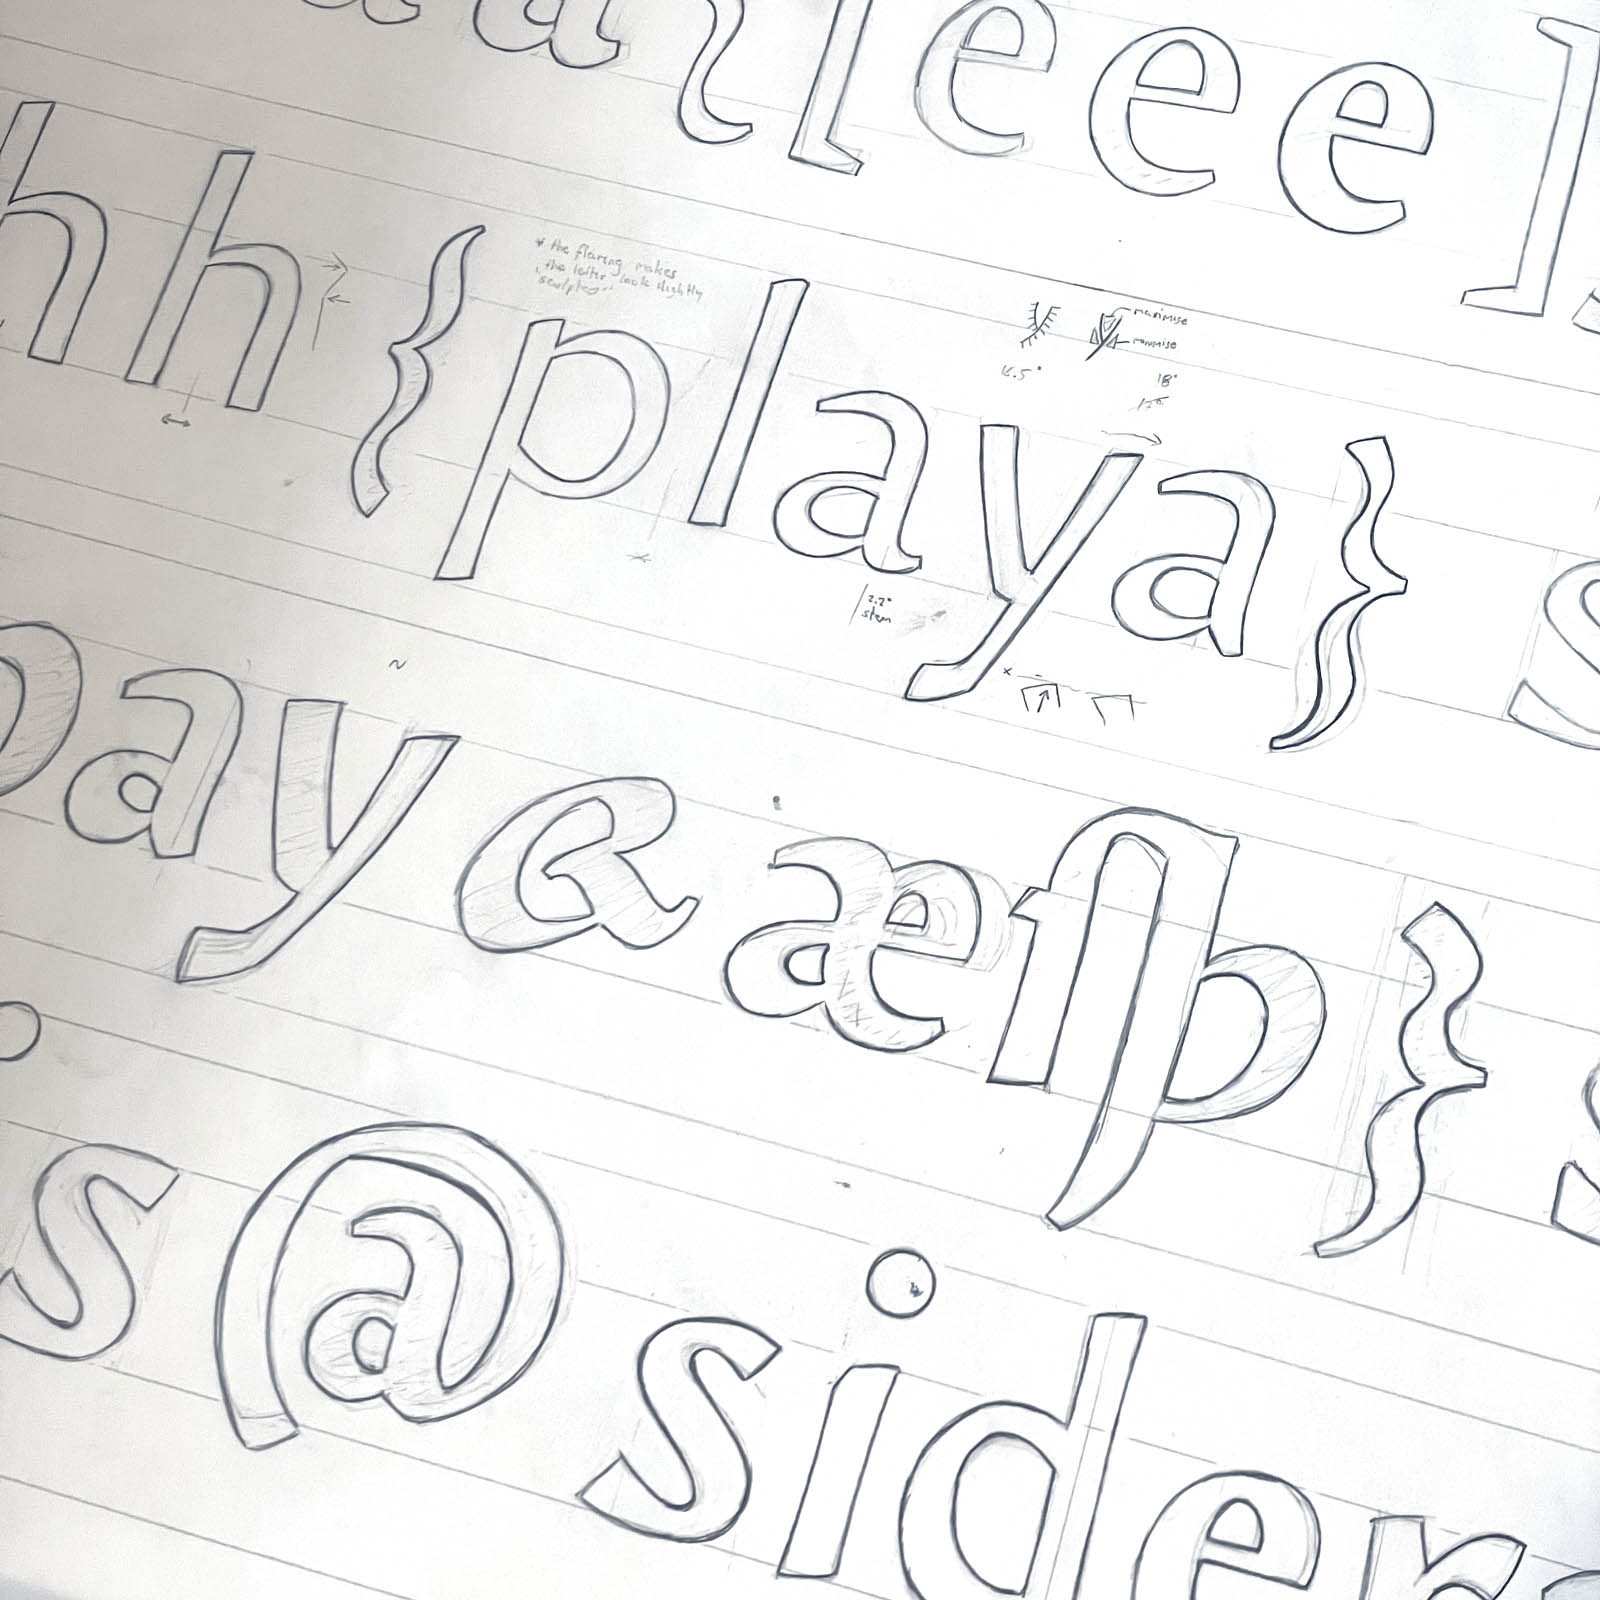 a a l e e e ]
h h { p l a y a } s
* the flaring makes
the letter look slightly
sculpted..
maximise
minimise
16.5°
18°
17°
2.2°
stem
p a y & æ ſb } s
s @ s i d e r s